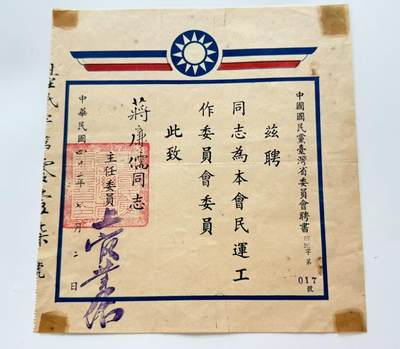 中國國民黨臺灣省委員會聘書 字第017號
茲聘
同志為本會民運工
作委員會委員
此致
蔣廉儒同志
主任委員 上官業佑
中華民國四十二年七月二日